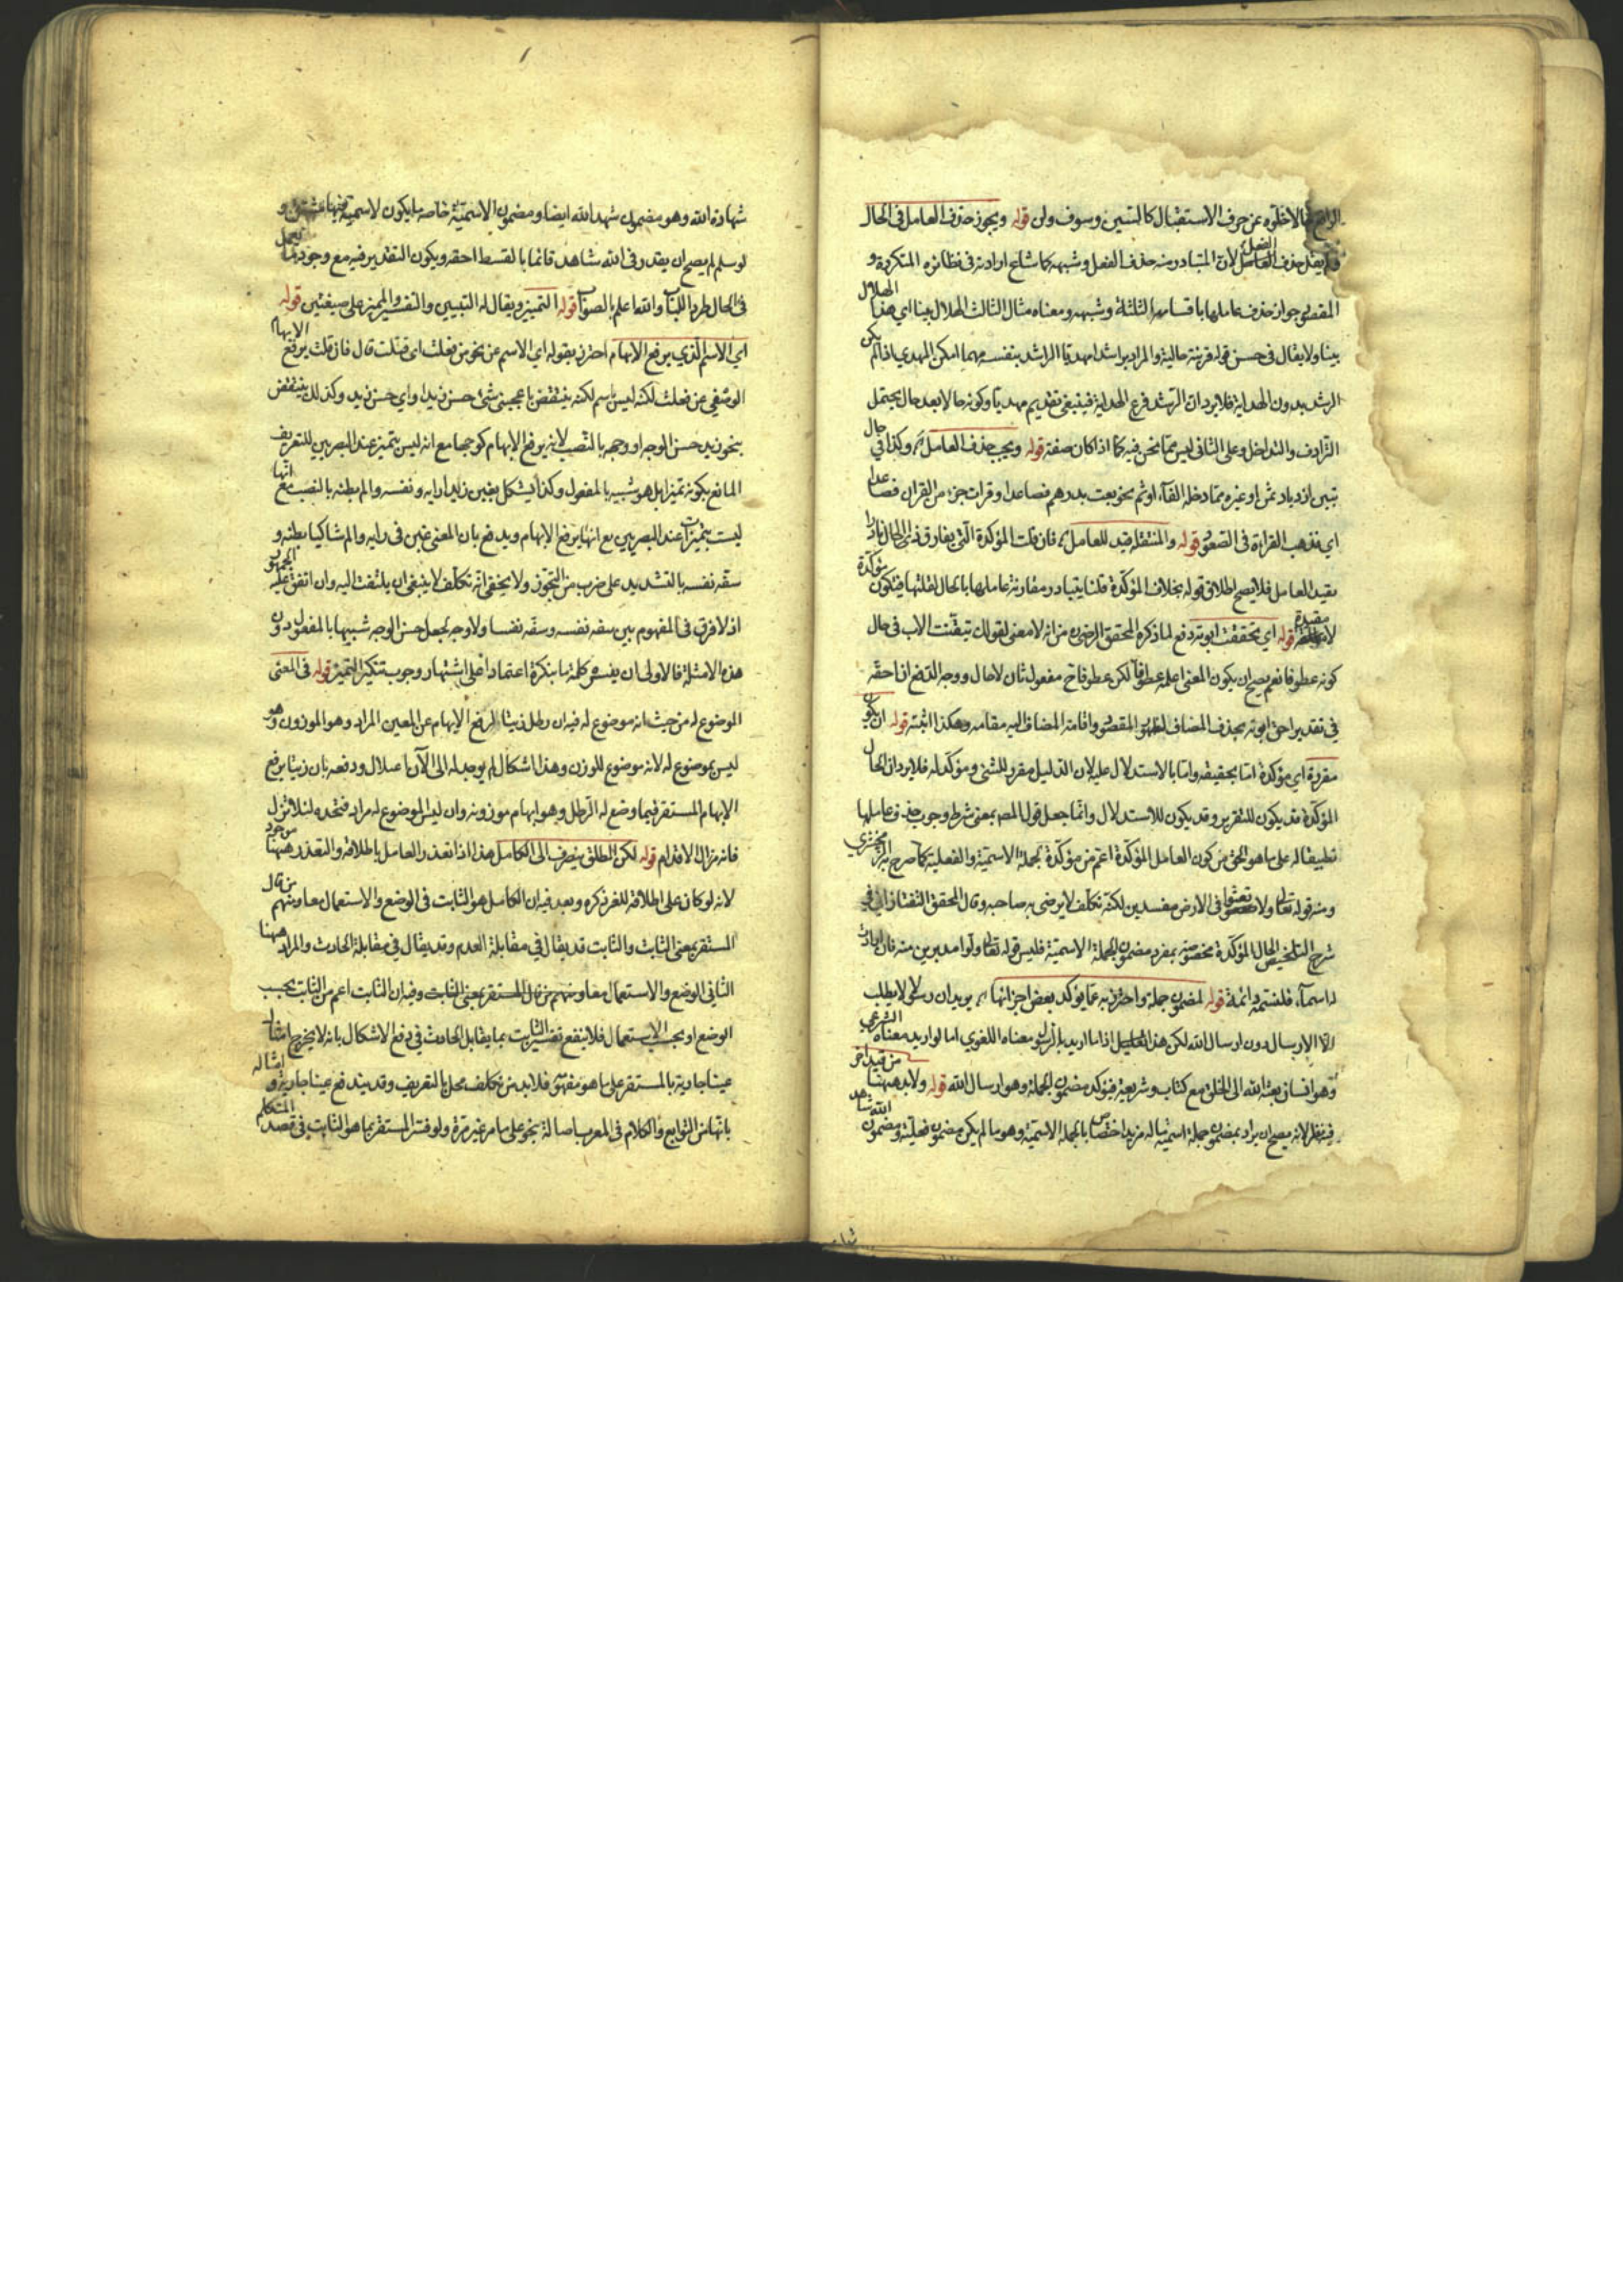 الاخلوه عن حرف الاستقبال كالسين وسوف ولن قوله ويجوز حذف العامل في الحال
ولم يقل حذف الفعل لان المتبادر منه حذف الفعل وشبهه كما شاع ارادته في نظائره المتكررة و
المقصود جواز حذف عاملها باقسامه الثلثة وشبهه ومعناه مثال الثالث الهلال بينا اي هذا الهلال
بينا ولا يقال في حسن قوله قرينة حالية والمراد براشدا مهديا الراشد بنفسه مهما امكن المهدي اذا لم يكن
الرشد بدون الهداية فلا يرد ان الرشد فرع الهداية فينبغي تقديم مهديا وكونه حالا بعد حال يحتمل
الترادف والتداخل وعلى الثاني ليس مما نحن فيه كما اذا كان صفة قوله ويجب حذف العامل وكذا في حال
تبين ازدياد ثمن او غيره مما دخله الفاء او ثم نحو بعت بدرهم فصاعدا وقرات جزء من القران فصاعدا
اي فذهب القراءة في الصعود قوله والمنتقلة قيد للعامل فان قلت المؤكدة التي يفارق ذي الحال نادرا
يقيد العامل فلا يصح اطلاق قوله بخلاف المؤكدة قلنا يتبادر مقارنة عاملها بالحال لقلتها فيكون مؤكدة
لا مقيدة قوله اي تحققت ابوته دفع لما ذكره المحقق الرضي من انه لا معنى لقولك تيقنت الاب في حال
كونه عطوفا نعم يصح ان يكون المعنى اعلمه عطوفا لكن عطوفا ح مفعول ثان لا حال ووجه الدفع ان احقه
في تقدير احق ابوته بحذف المضاف لظهور المقصود واقامة المضاف اليه مقامه وهكذا اثبته قوله ان يكون
مقررة اي مؤكدة اما بحقيقه واما بالاستدلال عليه لان الدليل مقرر للشئ ومؤكد له فلا يرد ان الحال
المؤكدة قد يكون للتقرير وقد يكون للاستدلال وانما جعل قول المصـ بمعنى شرط وجوب حذف عاملها
تطبيقا له على ما هو الحق من كون العامل المؤكدة اعم من مؤكدة لجملة الاسمية والفعلية كما صرح به الزمخشري
ومنه قوله تعالى ولا تعثوا في الارض مفسدين لكنه تكلف لا يرضى به صاحبه وقال المحقق التفتازاني في
شرح التلخيص الحال المؤكدة مخصوصة بمفرد مضمون الجملة الاسمية فليس قوله تعالى ولوا مدبرين منه فان
له اسماء فلنسمه دائمة قوله لمضمون جملة واحترز به عما يؤكد بعض اجزائها يريد ان رسولا لا يطلب
الا الارسال دون ارسال الله لكن هذا اذا ما اريد بالرسول معناه اللغوي اما لو اريد معناه الشرعي
وهو انسان بعثه الله الى الخلق مع كتاب وشريعة فيؤكد مضمون الجملة وهو ارسال الله قوله ولا بد ههنا من قيد اخر
فيه نظر لانه يصح ان يراد بمضمون جملة اسمية ما له مزيد اختصاص بالجملة الاسمية وهو ما لم يكن مضمون فعلية ومضمون الله شاهد
شهادة الله وهو مضمون شهد الله ايضا ومضمون الاسمية خاصة ما يكون لاسمية
لو سلم لم يصح ان يقدر في الله شاهد قائما بالقسط احقه ويكون التقدير فيه مع وجود
في الحال طردا للباب والله اعلم بالصواب قوله التمييز ويقال له التبيين والتفسير والمميز على صيغتين قوله
اي الاسم الذي يرفع الابهام احترز بقوله اي الاسم عن نحو من فعلت اي فضلت قال فان قلت يرفع الابهام
الوضعي عن فعلت لكنه ليس باسم لكنه ينتقض باعجبني شئ حسن زيد واي حسن زيد وكذلك ينتقض
بنحو زيد حسن الوجه او وجهه بالنصب لانه يرفع الابهام كوجها مع انه ليس بتميز عند البصريين للتعريف
المانع بكونه تميزا بل هو شبيه بالمفعول وكذا يشكل بغبن زيد رايه ونفسه والم بطنه بالنصب مع انها
ليست بتميزات عند البصريين مع انها يرفع الابهام ويدفع بان المعنى غبن في رايه والم شاكيا بطنه و
سفه نفسه بالتشديد على ضرب من التجوز ولا يخفى انه تكلف لا ينبغي ان يلتفت اليه وان اتفق عليه الجمهور
اذ لا فرق في المفهوم بين سفه نفسه وسفه نفسا ولا وجه لجعل حسن الوجه شبيها بالمفعول دون
هذه الامثلة فالاولى ان يفسر كلمة ما بنكرة اعتمادا على اشتهار وجوب تنكير التميز قوله في المعنى
الموضوع له من حيث انه موضوع له فيه ان رطل زيتا لرفع الابهام عن المعين المراد وهو الموزون وهو
ليس بموضوع له لانه موضوع للوزن وهذا اشكال لم يوجد له الى الآن ودفعه بان زيتا يرفع
الابهام المستقر فيما وضع له الرطل وهو ابهام موزونه وان ليس الموضوع له مراد فتحده لئلا تزل
فانه مزال الاقدام قوله لكن المطلق ينصرف الى الكامل هذا اذا تعذر العامل باطلاقه والتعذر ههنا موجود
لانه لو كان على اطلاقه للغى ذكره وبعد فيه ان الكامل هو الثابت في الوضع والاستعمال معا ومنهم من قال
المستقر بمعنى الثابت والثابت قد يقال في مقابلة العدم وقد يقال في مقابلة الحادث والمراد ههنا
الثاني الوضع والاستعمال معا ومنهم من قال المستقر بمعنى الثابت وفيه ان الثابت اعم من الثابت بحسب
الوضع او بحسب الاستعمال فلا ينفع تفسير الثابت بما يقابل الحادث في دفع الاشكال بانه لا يخرج امثال
عينا جارية بالمستقر على ما هو مفهومه فلا بد من تكلف مخل بالتعريف وقد يندفع عينا جارية وامثاله
بانها من التوابع والكلام في المعرب اصالة نحو على ما مر غير مرة ولو فسر المستقر بما هو الثابت في قصد المتكلم